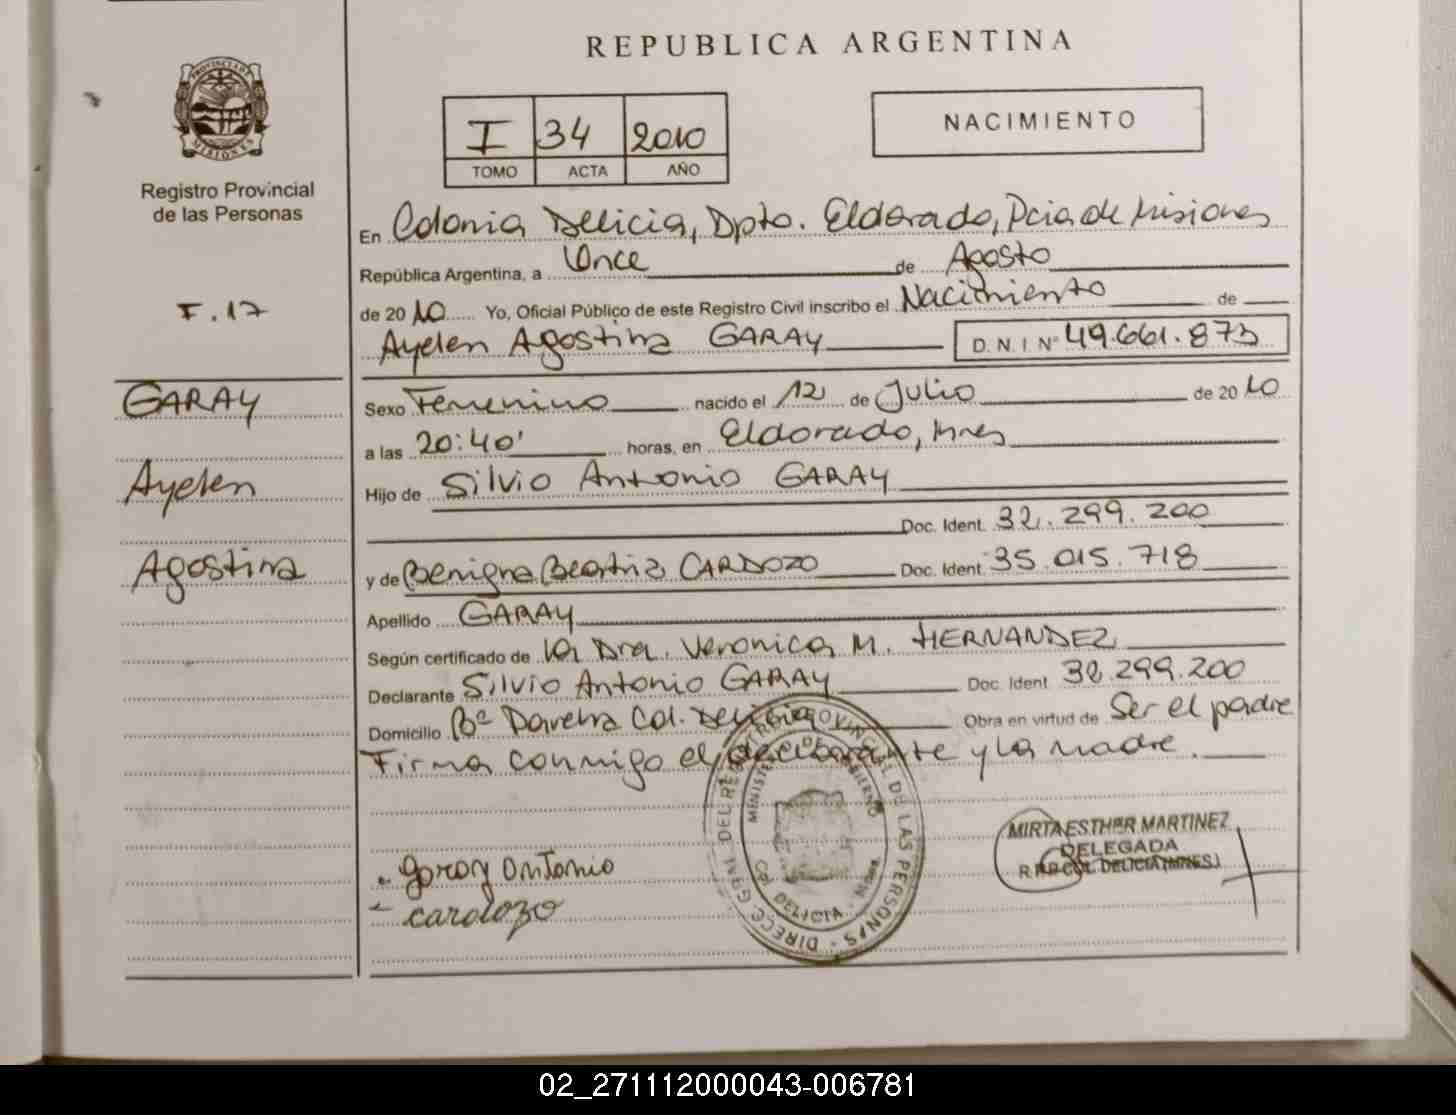 REPUBLICA ARGENTINA
PROVINCIA DE MISIONES
Registro Provincial
de las Personas
I 34 2010
TOMO ACTA AÑO
NACIMIENTO
F. 17
GARAY
Ayelen
Agostina
En Colonia Delicia, Dpto. Eldorado, Pcia de Misiones
República Argentina, a Once de Agosto
de 2010 Yo, Oficial Público de este Registro Civil inscribo el Nacimiento de
Ayelen Agostina GARAY D.N.I. Nº 49.661.873
Sexo Femenino nacido el 12 de Julio de 2010
a las 20:40' horas, en Eldorado, Mnes
Hijo de Silvio Antonio GARAY
Doc. Ident. 32.299.200
y de Benigna Beatriz CARDOZO Doc. Ident. 35.015.718
Apellido GARAY
Según certificado de la Dra. Veronica M. HERNANDEZ
Declarante Silvio Antonio GARAY Doc. Ident 32.299.200
Domicilio Bº Col. Delicia Obra en virtud de Ser el padre
Firma conmigo el declarante y la madre.
DIRECC. GRAL. DEL REGISTRO PROVINCIAL DE LAS PERSONAS
MINISTERIO DE GOBIERNO
COL. DELICIA - MNES
MIRTA ESTHER MARTINEZ
DELEGADA
R.P.P. COL. DELICIA (MNES.)
Garay Antonio
cardozo
02_271112000043-006781